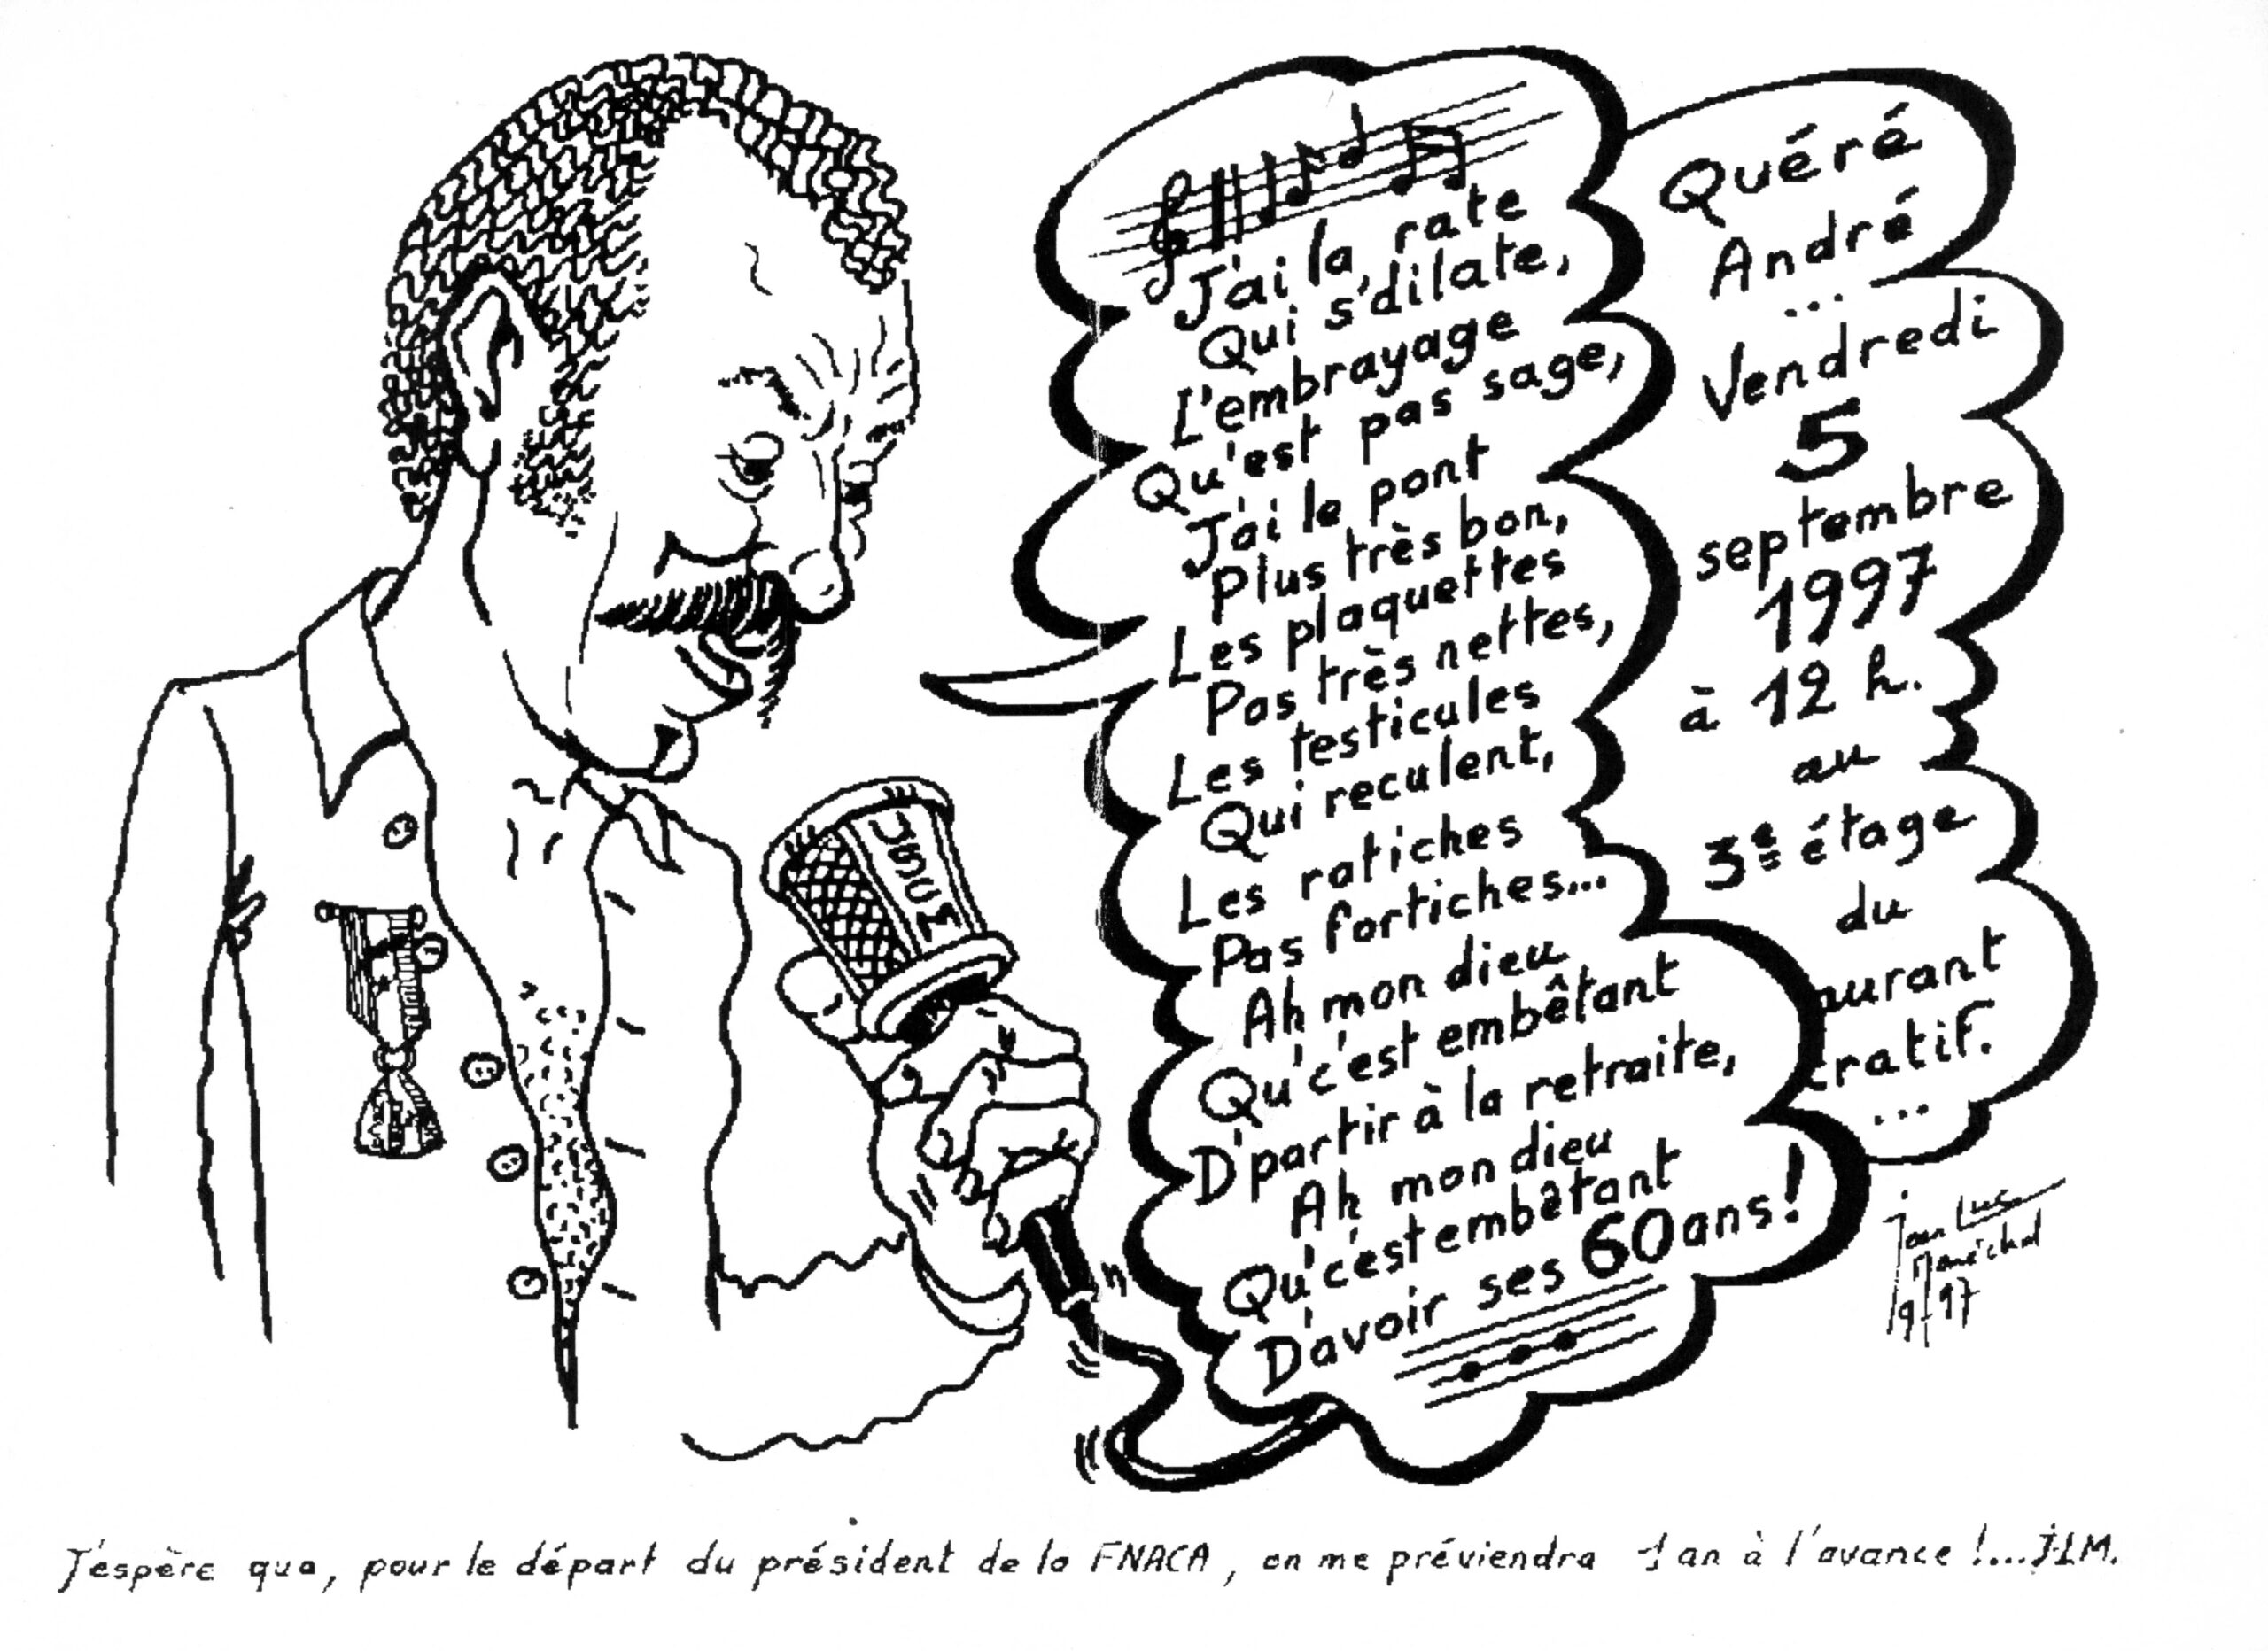 J'ai la rate
Qui s'dilate,
L'embrayage
Qu'est pas sage,
J'ai le pont
Plus très bon,
Les plaquettes
Pas très nettes,
Les testicules
Qui reculent,
Les ratiches
Pas fortiches...
Ah mon dieu
Qu'c'est embêtant
D'partir à la retraite,
Ah mon dieu
Qu'c'est embêtant
D'avoir ses 60 ans !
Quéré
André
...
Vendredi
5
septembre
1997
à 12 h.
au
3e étage
du
urant
ratif.
...
Jean Luc
Maréchal
9/97
J'espère que, pour le départ du président de la FNACA, on me préviendra 1 an à l'avance !... JLM.